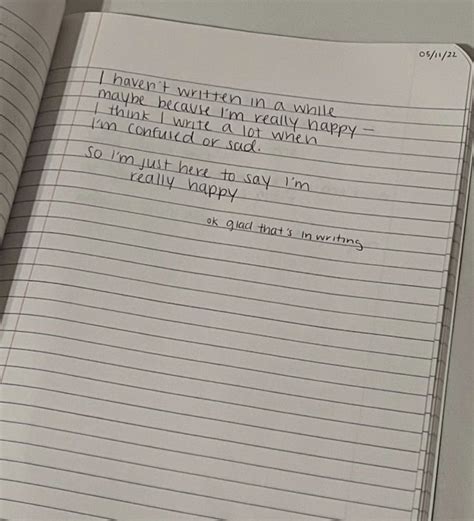 05/11/22
I haven't written in a while
maybe because I'm really happy —
I think I write a lot when
I'm confused or sad.
So I'm just here to say I'm
really happy
ok glad that's in writing